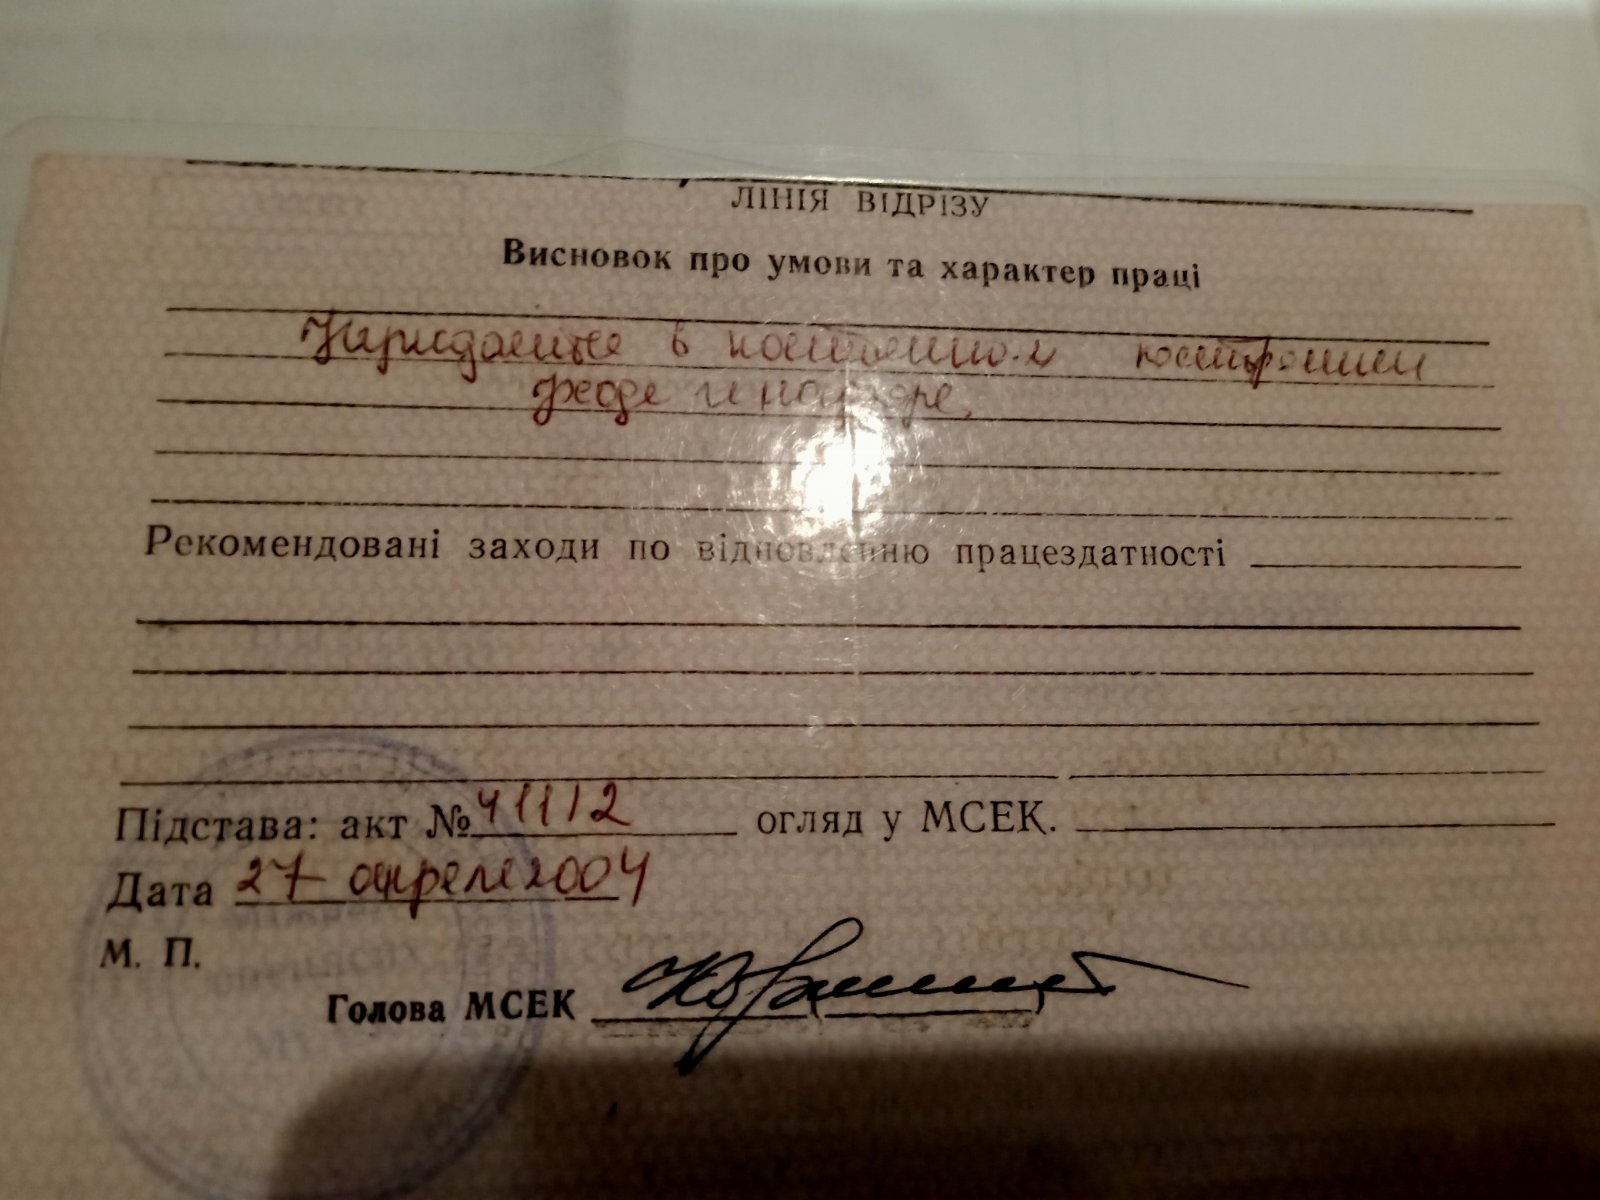 ЛІНІЯ ВІДРІЗУ
Висновок про умови та характер праці
Нуждается в постоянном постороннем
уходе и надзоре.
Рекомендовані заходи по відновленню працездатності
Підстава: акт № 41112 огляд у МСЕК.
Дата 27 апреля 2004
М. П.
Голова МСЕК